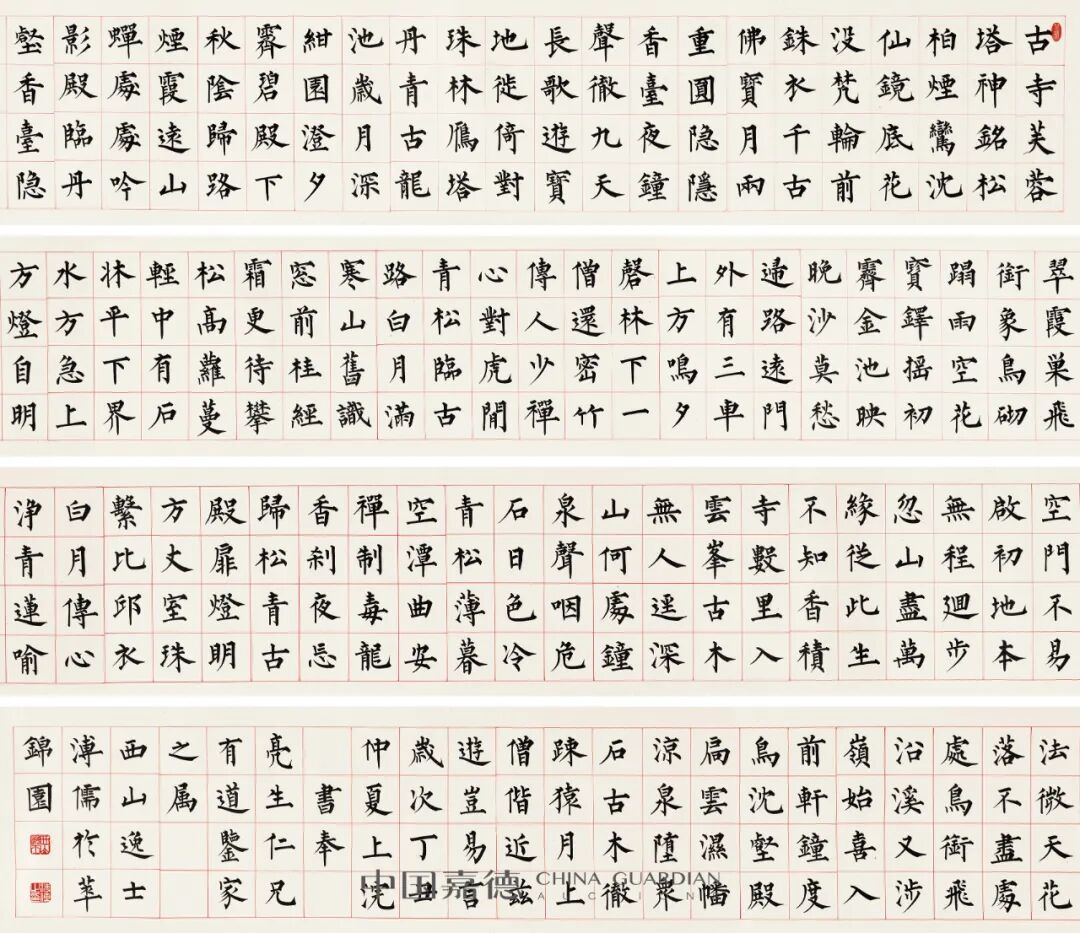 古寺芙蓉
塔神銘松
柏煙鸞沈
仙鏡底花
没梵輪前
銖衣千古
佛寳月兩
重圓隐隱
香臺夜鐘
聲徹九天
長歌遊寳
地徙倚對
珠林鴈塔
丹青古龍
池歲月深
紺園澄夕
霽碧殿下
秋陰歸路
煙霞遠山
蟬處處吟
影殿臨丹
壑香臺隐
翠霞巢飛
銜象鳥砌
蹋雨空花
寳鐸搖初
霽金池映
晚沙莫愁
歸路遠門
外有三車
上方鳴夕
磬林下一
僧還密竹
傳人少禪
心對虎閒
青松臨古
路白月滿
寒山舊識
窓前桂經
霜更待攀
松高蘿蔓
輕中有石
牀平下界
水方急上
方燈自明
空門不易
啟初地本
無程廻步
忽山盡萬
緣從此生
不知香積
寺數里入
雲峯古木
無人逕深
山何處鐘
泉聲咽危
石日色冷
青松薄暮
空潭曲安
禪制毒龍
香刹夜忌
歸松青古
殿扉燈明
方丈室珠
繫比邱衣
白月傳心
浄青蓮喻
法微天花
落不盡處
處鳥銜飛
沿溪又涉
嶺始喜入
前軒鐘度
鳥沈壑殿
扃雲濕幡
涼泉墮衆
石古木徹
疎猿月上
僧偕近兹
遊豈易言
歲次丁丑
仲夏上浣
書奉
亮生仁兄
有道鑒家
之属
西山逸士
溥儒於萃
錦園
中国嘉德 CHINA GUARDIAN
AUCTIONS